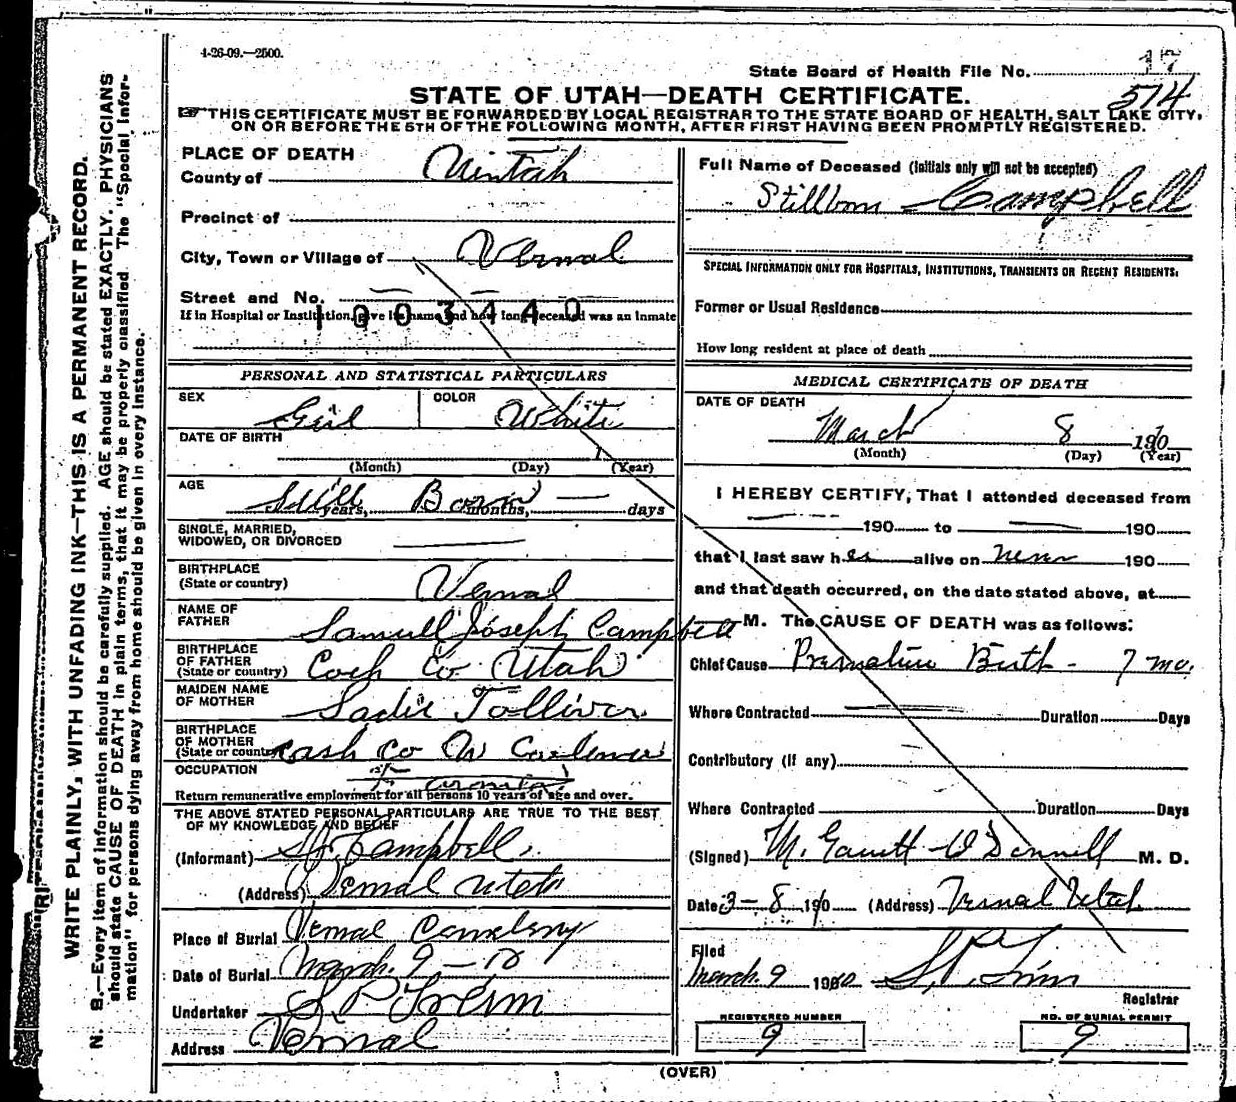 4-26-09.—2500.
17
State Board of Health File No.
514
STATE OF UTAH—DEATH CERTIFICATE.
THIS CERTIFICATE MUST BE FORWARDED BY LOCAL REGISTRAR TO THE STATE BOARD OF HEALTH, SALT LAKE CITY,
ON OR BEFORE THE 5TH OF THE FOLLOWING MONTH, AFTER FIRST HAVING BEEN PROMPTLY REGISTERED.
WRITE PLAINLY, WITH UNFADING INK—THIS IS A PERMANENT RECORD.
N. B.—Every item of information should be carefully supplied. AGE should be stated EXACTLY. PHYSICIANS
should state CAUSE OF DEATH in plain terms, that it may be properly classified. The "Special Infor-
mation" for persons dying away from home should be given in every instance.
PLACE OF DEATH
County of Uintah
Precinct of
City, Town or Village of Vernal
Street and No.
If in Hospital or Institution, give its name and how long deceased was an inmate
1003440
PERSONAL AND STATISTICAL PARTICULARS
SEX Girl COLOR White
DATE OF BIRTH
(Month) (Day) (Year)
AGE Still years, Born months, — days
SINGLE, MARRIED,
WIDOWED, OR DIVORCED
BIRTHPLACE
(State or country) Vernal
NAME OF
FATHER Samuell Joseph Campbell
BIRTHPLACE
OF FATHER
(State or country) Coch Co Utah
MAIDEN NAME
OF MOTHER Sadie Tolliver
BIRTHPLACE
OF MOTHER
(State or country) cash co
OCCUPATION
Return remunerative employment for all persons 10 years of age and over.
THE ABOVE STATED PERSONAL PARTICULARS ARE TRUE TO THE BEST
OF MY KNOWLEDGE AND BELIEF
(Informant) S J Campbell
(Address) Vernal Utah
Place of Burial Vernal Cemetery
Date of Burial March 9 – 10
Undertaker S P
Address Vernal
Full Name of Deceased (Initials only will not be accepted)
Stillborn Campbell
SPECIAL INFORMATION ONLY FOR HOSPITALS, INSTITUTIONS, TRANSIENTS OR RECENT RESIDENTS:
Former or Usual Residence
How long resident at place of death
MEDICAL CERTIFICATE OF DEATH
DATE OF DEATH
March 8 1910
(Month) (Day) (Year)
I HEREBY CERTIFY, That I attended deceased from
190 to 190
that I last saw her alive on never 190
and that death occurred, on the date stated above, at
M. The CAUSE OF DEATH was as follows:
Chief Cause Premature Birth - 7 mo.
Where Contracted Duration Days
Contributory (if any)
Where Contracted Duration Days
(Signed) M. Garrett O'Donnell M. D.
Date 3-8 1910 (Address) Vernal Utah
Filed
March 9 1910 S. P.
Registrar
REGISTERED NUMBER
9
NO. OF BURIAL PERMIT
9
(OVER)